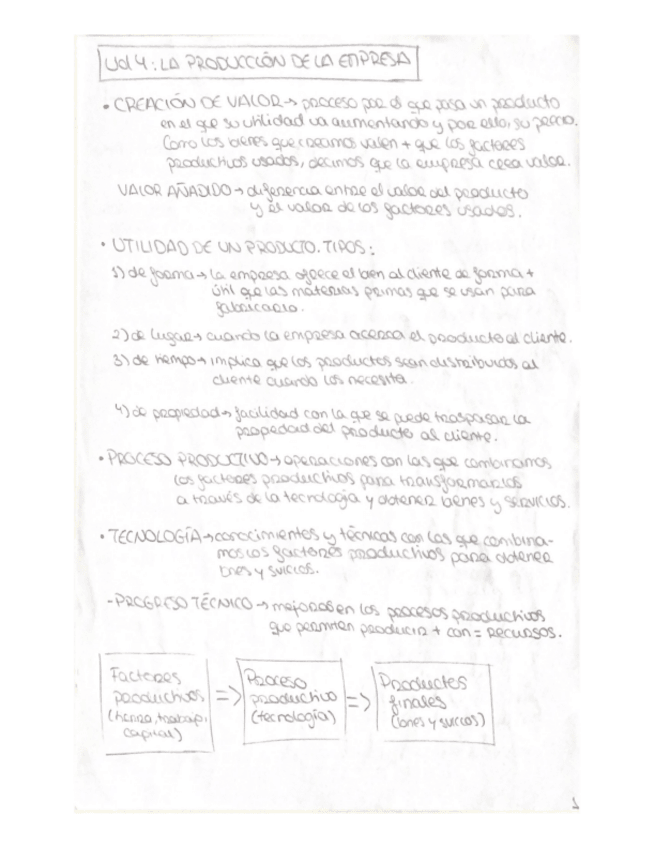 Ud 4: LA PRODUCCIÓN DE LA EMPRESA
• CREACIÓN DE VALOR → proceso por el que pasa un producto
en el que su utilidad va aumentando y por ello, su precio.
Como los bienes que creamos valen + que los factores
productivos usados, decimos que la empresa crea valor.
VALOR AÑADIDO → diferencia entre el valor del producto
y el valor de los factores usados.
• UTILIDAD DE UN PRODUCTO. TIPOS:
1) de forma → la empresa ofrece el bien al cliente de forma +
útil que las materias primas que se usan para
fabricarlo.
2) de lugar → cuando la empresa acerca el producto al cliente.
3) de tiempo → implica que los productos sean distribuidos al
cliente cuando los necesita.
4) de propiedad → facilidad con la que se puede traspasar la
propiedad del producto al cliente.
• PROCESO PRODUCTIVO → operaciones con las que combinamos
los factores productivos para transformarlos
a través de la tecnología y obtener bienes y servicios.
• TECNOLOGÍA → conocimientos y técnicas con las que combina-
mos los factores productivos para obtener
bnes y svicios.
- PROGRESO TÉCNICO → mejoras en los procesos productivos
que permiten producir + con = recursos.
Factores
productivos
(tierra, trabajo,
capital)
=>
Proceso
productivo
(tecnología)
=>
Productos
finales
(bnes y svicios)
1